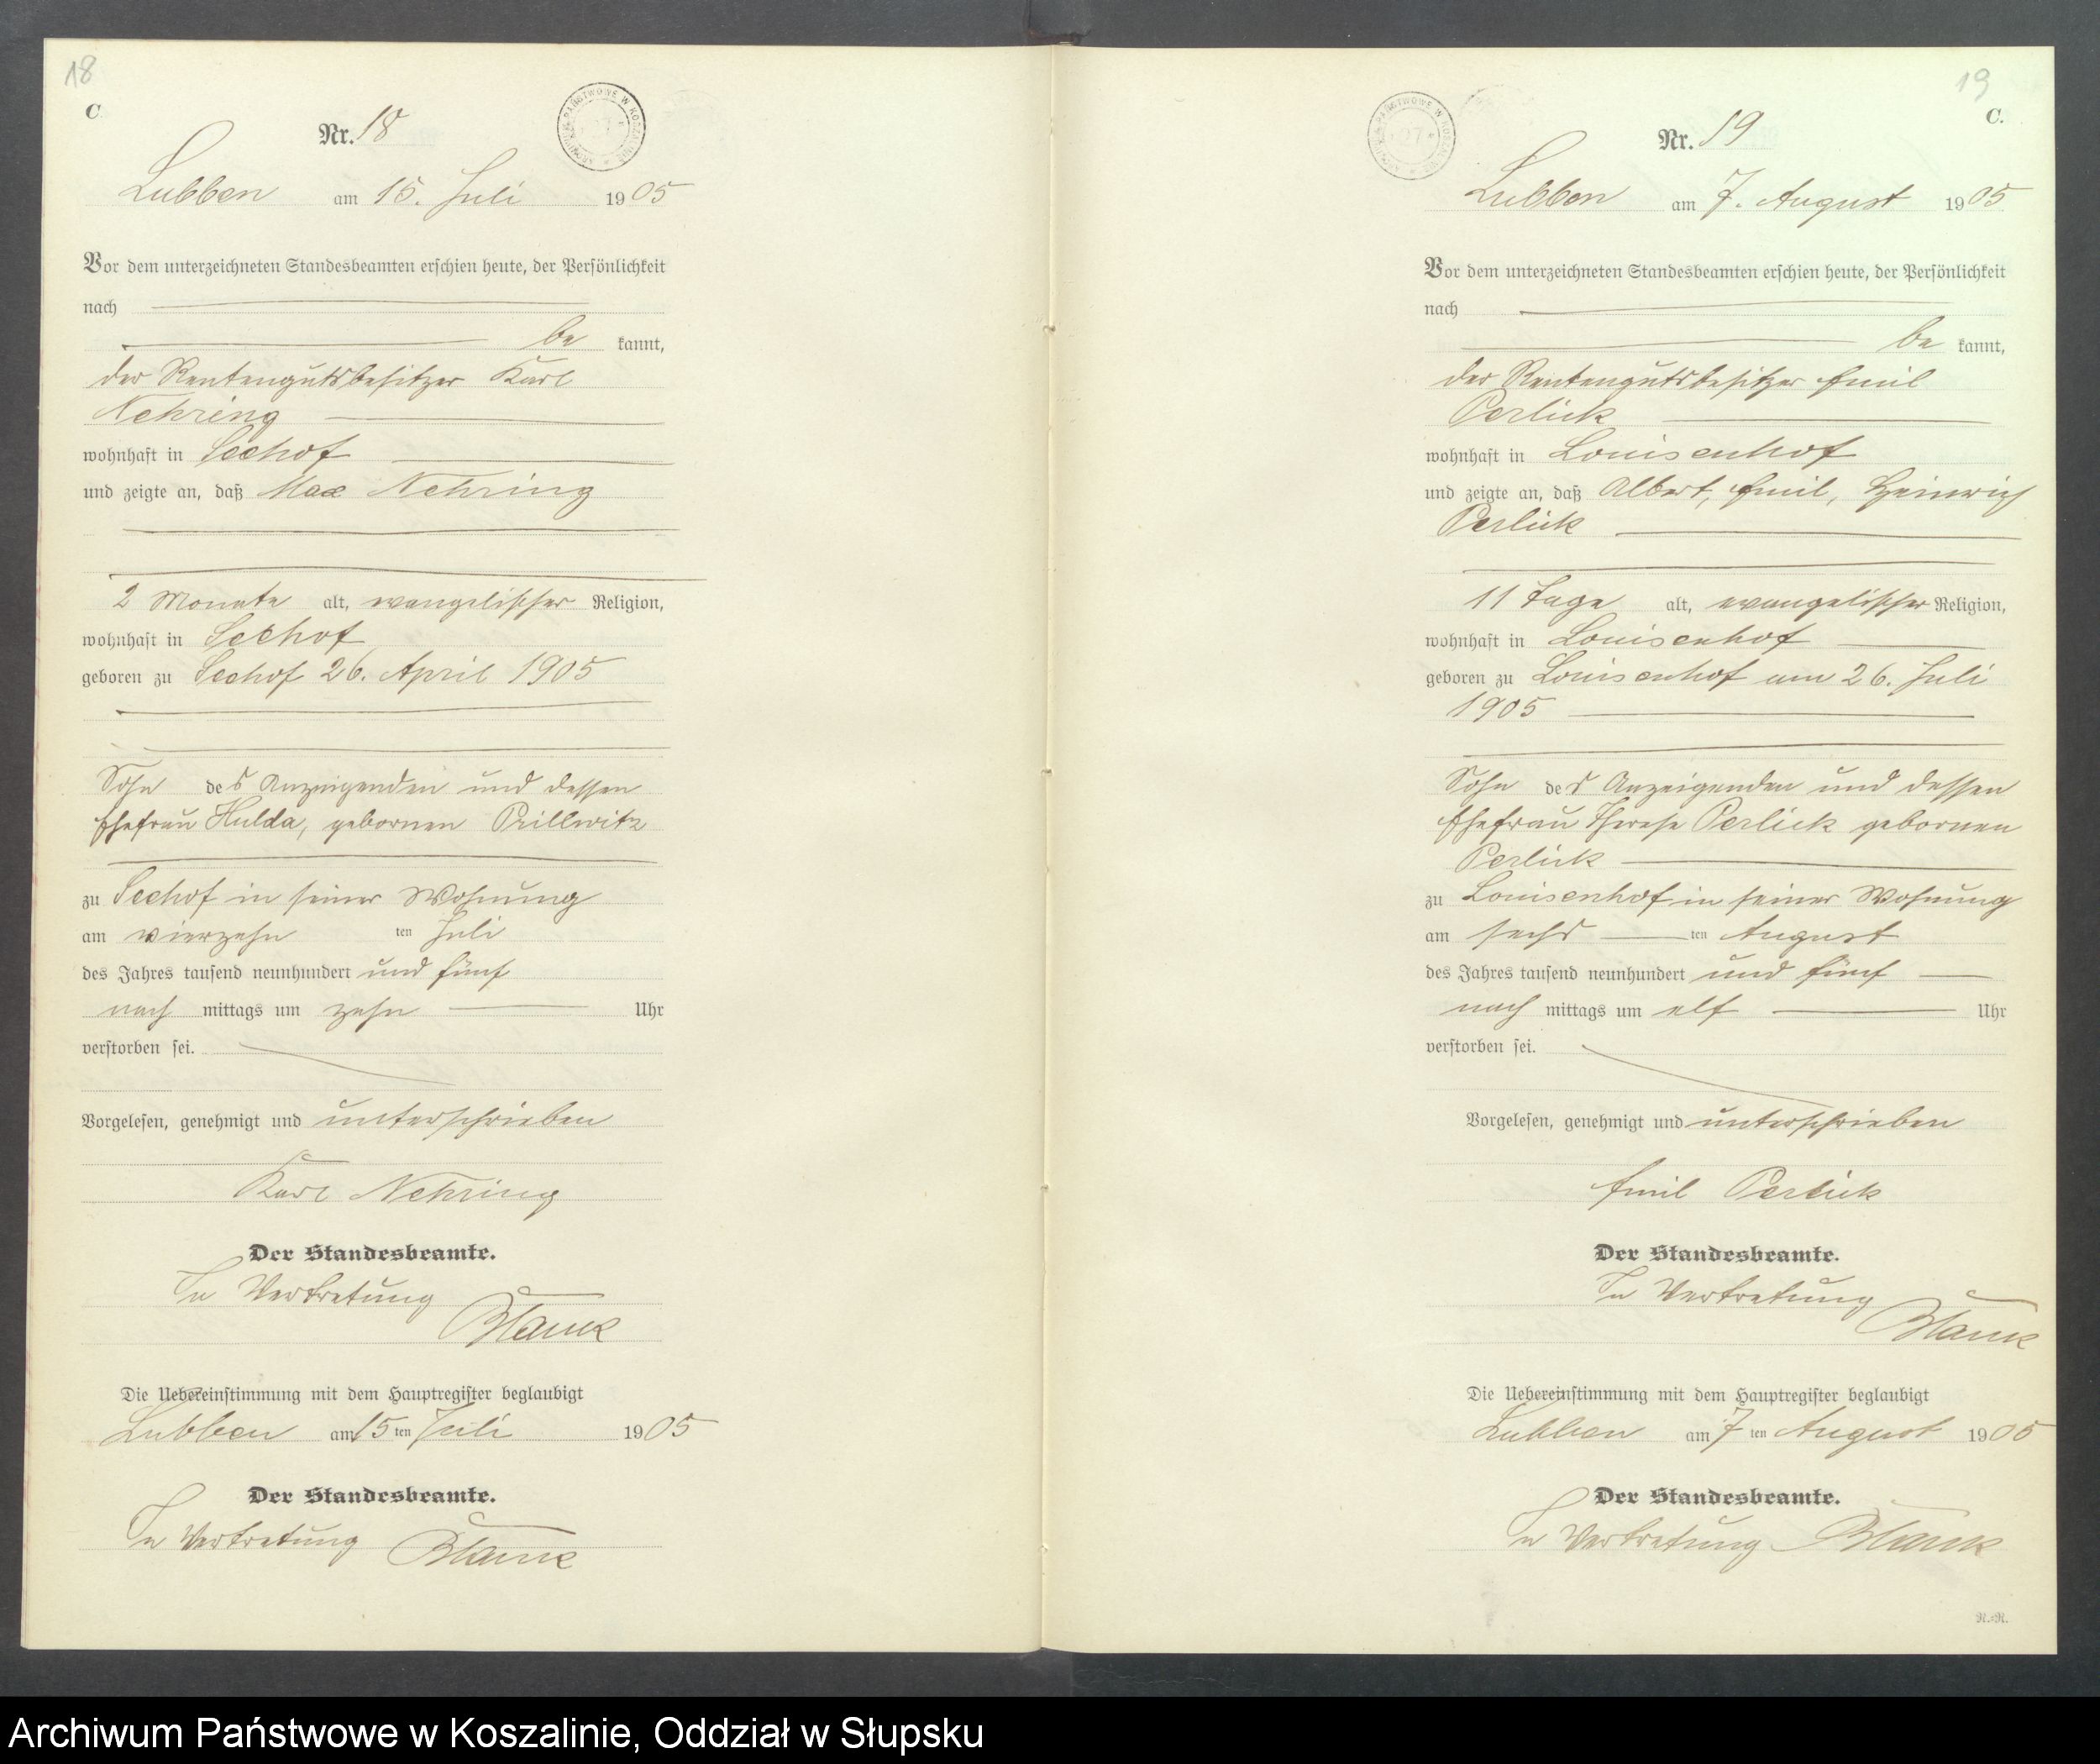 18
C
Nr. 18
ARCHIWUM PAŃSTWOWE W KOSZALINIE
Lubben am 15. Juli 1905
Vor dem unterzeichneten Standesbeamten erschien heute, der Persönlichkeit
nach
be kannt,
der Rentengutsbesitzer Karl
Nehring
wohnhaft in Seehof
und zeigte an, daß Max Nehring
2 Monate alt, evangelischer Religion,
wohnhaft in Seehof
geboren zu Seehof 26. April 1905
Sohn des Anzeigenden und dessen
Ehefrau Hulda, gebornen Prillwitz
zu Seehof in seiner Wohnung
am vierzehn ten Juli
des Jahres tausend neunhundert und fünf
nach mittags um zehn Uhr
verstorben sei.
Vorgelesen, genehmigt und unterschrieben
Karl Nehring
Der Standesbeamte.
In Vertretung
Blanck
Die Uebereinstimmung mit dem Hauptregister beglaubigt
Lubben am 15 ten Juli 1905
Der Standesbeamte.
In Vertretung Blanck
19
C.
Nr. 19
ARCHIWUM PAŃSTWOWE W KOSZALINIE
27
Lubben am 7. August 1905
Vor dem unterzeichneten Standesbeamten erschien heute, der Persönlichkeit
nach
be kannt,
der Rentengutsbesitzer Emil
Perlick
wohnhaft in Louisenhof
und zeigte an, daß Albert, Emil, Heinrich
Perlick
11 Tage alt, evangelischer Religion,
wohnhaft in Louisenhof
geboren zu Louisenhof am 26. Juli
1905
Sohn des Anzeigenden und dessen
Ehefrau Therese Perlick gebornen
Perlick
zu Louisenhof in seiner Wohnung
am sechs ten August
des Jahres tausend neunhundert und fünf
nach mittags um elf Uhr
verstorben sei.
Vorgelesen, genehmigt und unterschrieben
Emil Perlick
Der Standesbeamte.
In Vertretung
Blanck
Die Uebereinstimmung mit dem Hauptregister beglaubigt
Lubben am 7 ten August 1905
Der Standesbeamte.
In Vertretung Blanck
R.=R.
Archiwum Państwowe w Koszalinie, Oddział w Słupsku